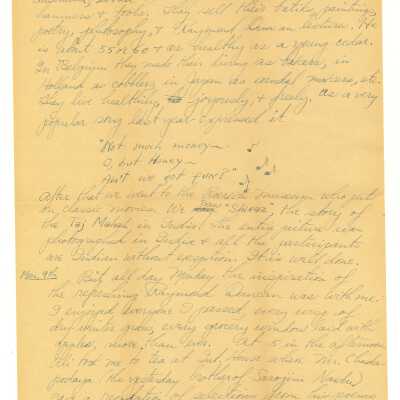 hammers & tools. They sell their batiks, paintings,
poetry, philosophy, & Raymond Duncan lectures. He
is about 55 or 60 & as healthy as a young cedar.
In Belgium they made their living as bakers, in
Holland as cobblers, in Japan as sandal makers, etc.
They live healthily, joyously, & freely. As a very
popular song last year expressed it
"Not much money –
O, but Honey –
Ain't we got fun?"
After that we went to the museum who put
on classic movies. We saw "Shiraz", the story of
the Taj Mahal, in India. The entire picture was
photographed in India & all the participants
are Indian without exception. It was well done.
Mon. 9th
But all day Monday the inspiration of
the refreshing Raymond Duncan was with me.
I enjoyed everyone I passed, every wisp of
dry winter grass, every grocery window laid with
apples, more than ever. At 5 in the afternoon
Oli and me to tea at Int. House when Mr. Chado-
padaya the yesterday brother of Sarojini Naidu
gave a recitation of selections from his poems